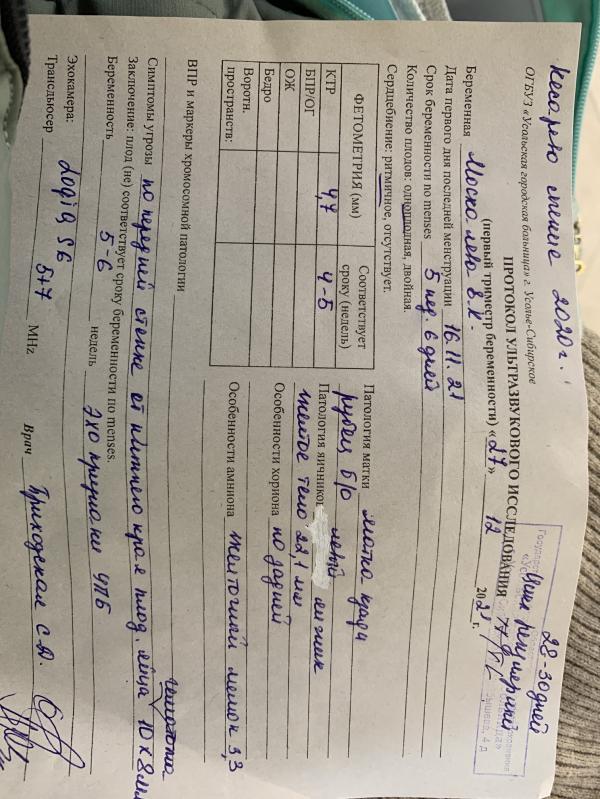 Кесарево сечение 2020 г.
28-30 дней
цикл регулярный
ОГБУЗ «Усольская городская больница» г. Усолье-Сибирское
ПРОТОКОЛ УЛЬТРАЗВУКОВОГО ИССЛЕДОВАНИЯ
(первый триместр беременности) «27» 12 2021 г.
Беременная Москалева В.К.
Дата первого дня последней менструации 16.11.21
Срок беременности по menses 5 нед. 6 дней
Количество плодов: одноплодная, двойная.
Сердцебиение: ритмичное, отсутствует.
ФЕТОМЕТРИЯ (мм) Соответствует сроку (недель)
КТР 4,7 4-5
БПР/ОГ
ОЖ
Бедро
Воротн. пространств:
Патология матки матка кзади
рубец б/о
Патология яичников левый яичник
желтое тело 22,1 мм
Особенности хориона по задней
Особенности амниона желточный мешок 3,3
ВПР и маркеры хромосомной патологии
гематома
Симптомы угрозы по передней стенке от нижнего края плод. яйца 10х8мм
Заключение: плод (не) соответствует сроку беременности по menses.
Беременность 5-6 недель Эхо признаки УПБ
Эхокамера: Logiq S6
Трансдьюсер 5+7 MHz Врач